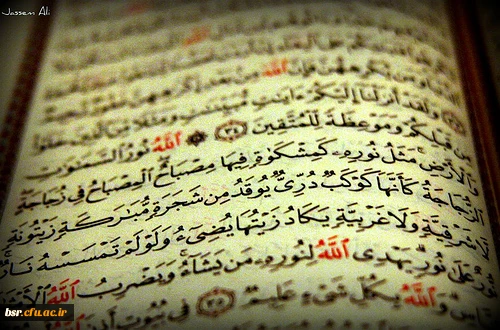 Jassem Ali
ٱللَّهَ مِنۢ بَعْدِ إِكْرَٰهِهِنَّ
وَلَقَدْ أَنزَلْنَآ إِلَيْكُمْ ءَايَٰتٍ مُّبَيِّنَٰتٍ وَمَثَلًا مِّنَ ٱلَّذِينَ خَلَوْا۟
مِن قَبْلِكُمْ وَمَوْعِظَةً لِّلْمُتَّقِينَ ٣٤ ۞ ٱللَّهُ نُورُ ٱلسَّمَٰوَٰتِ
وَٱلْأَرْضِ مَثَلُ نُورِهِۦ كَمِشْكَوٰةٍ فِيهَا مِصْبَاحٌ ٱلْمِصْبَاحُ فِى زُجَاجَةٍ
ٱلزُّجَاجَةُ كَأَنَّهَا كَوْكَبٌ دُرِّىٌّ يُوقَدُ مِن شَجَرَةٍ مُّبَٰرَكَةٍ زَيْتُونَةٍ
لَّا شَرْقِيَّةٍ وَلَا غَرْبِيَّةٍ يَكَادُ زَيْتُهَا يُضِىٓءُ وَلَوْ لَمْ تَمْسَسْهُ نَارٌ
نُّورٌ عَلَىٰ نُورٍ يَهْدِى ٱللَّهُ لِنُورِهِۦ مَن يَشَآءُ وَيَضْرِبُ ٱللَّهُ
وَٱللَّهُ بِكُلِّ شَىْءٍ عَلِيمٌ ٣٥ فِى بُيُوتٍ أَذِنَ
bsr.cfu.ac.ir